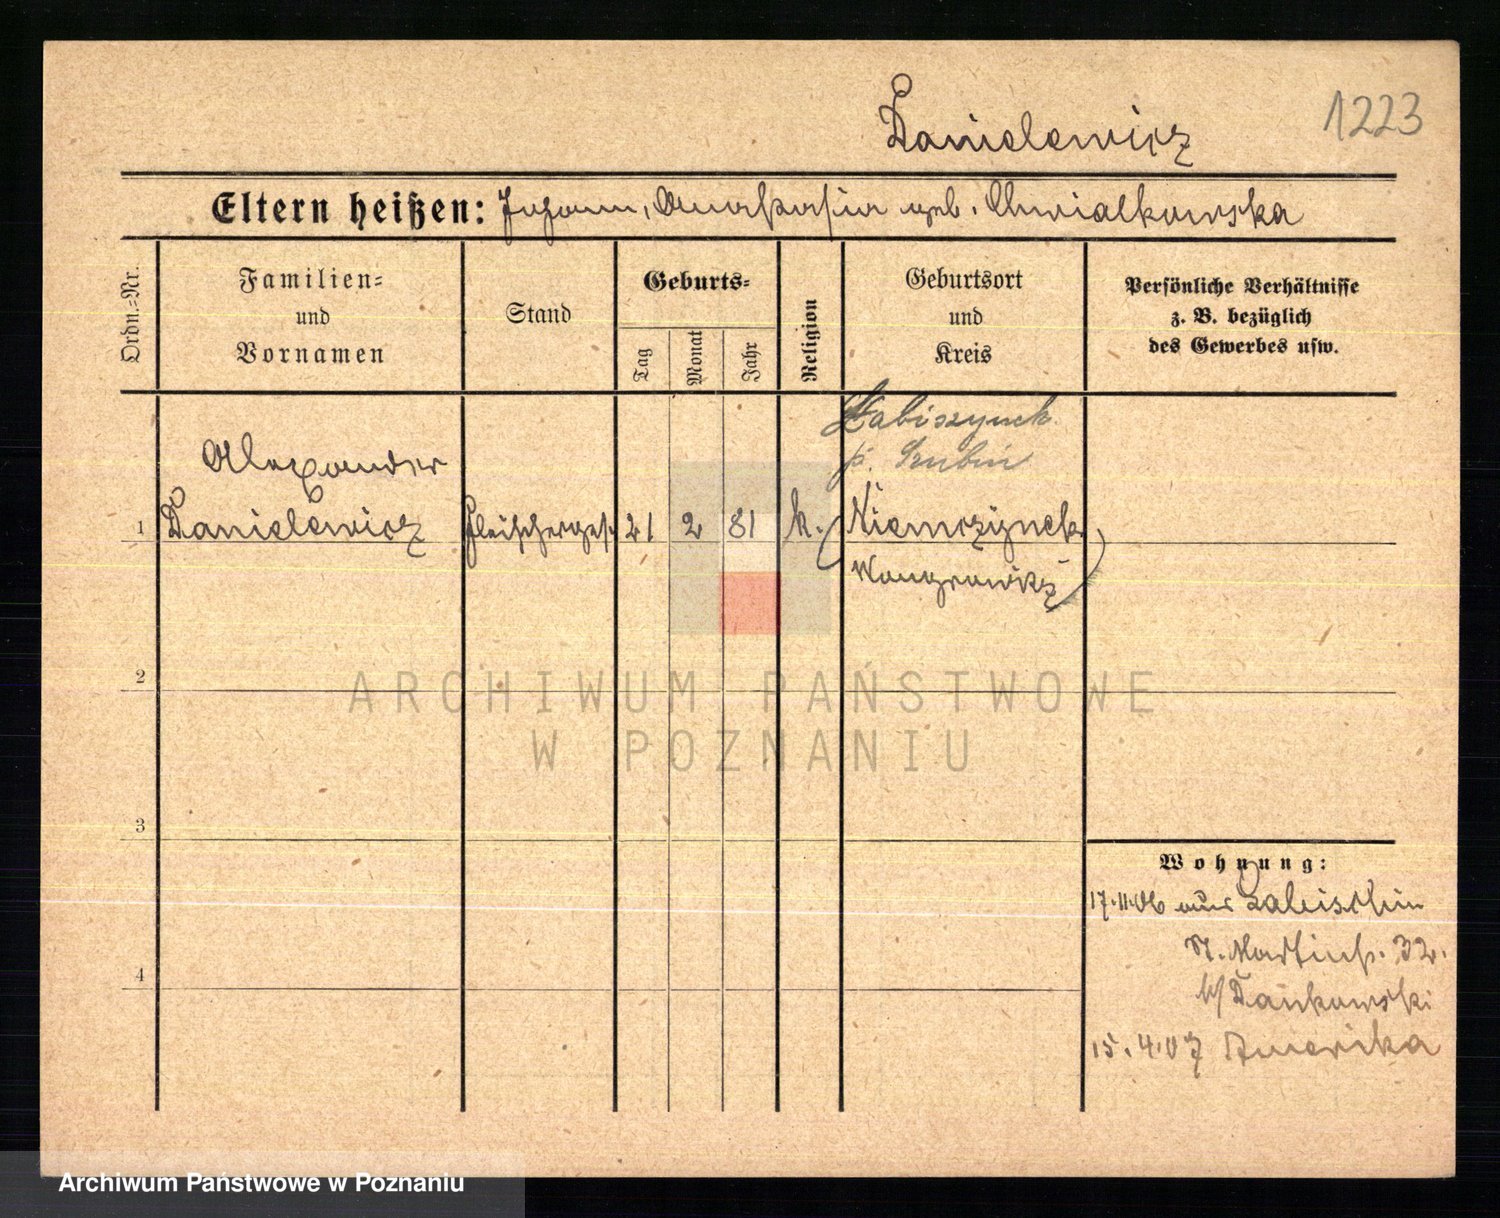 Danielewicz
1223
Eltern heißen: Johann, Anastasia geb. Chwialkowska
Ordn.=Nr.
Familien=
und
Vornamen
Stand
Geburts=
Tag
Monat
Jahr
Religion
Geburtsort
und
Kreis
Persönliche Verhältnisse
z. B. bezüglich
des Gewerbes usw.
1
Alexander
Danielewicz
Fleischerges.
21
2
81
k.
Labiszynek
p. Szubin
(Niemczynek
Wongrowitz)
2
3
4
Wohnung:
17.11.06 aus Labischin
St. Martinstr. 32.
b/ Dankowski
15.4.07 Amerika
ARCHIWUM PAŃSTWOWE
W POZNANIU
Archiwum Państwowe w Poznaniu